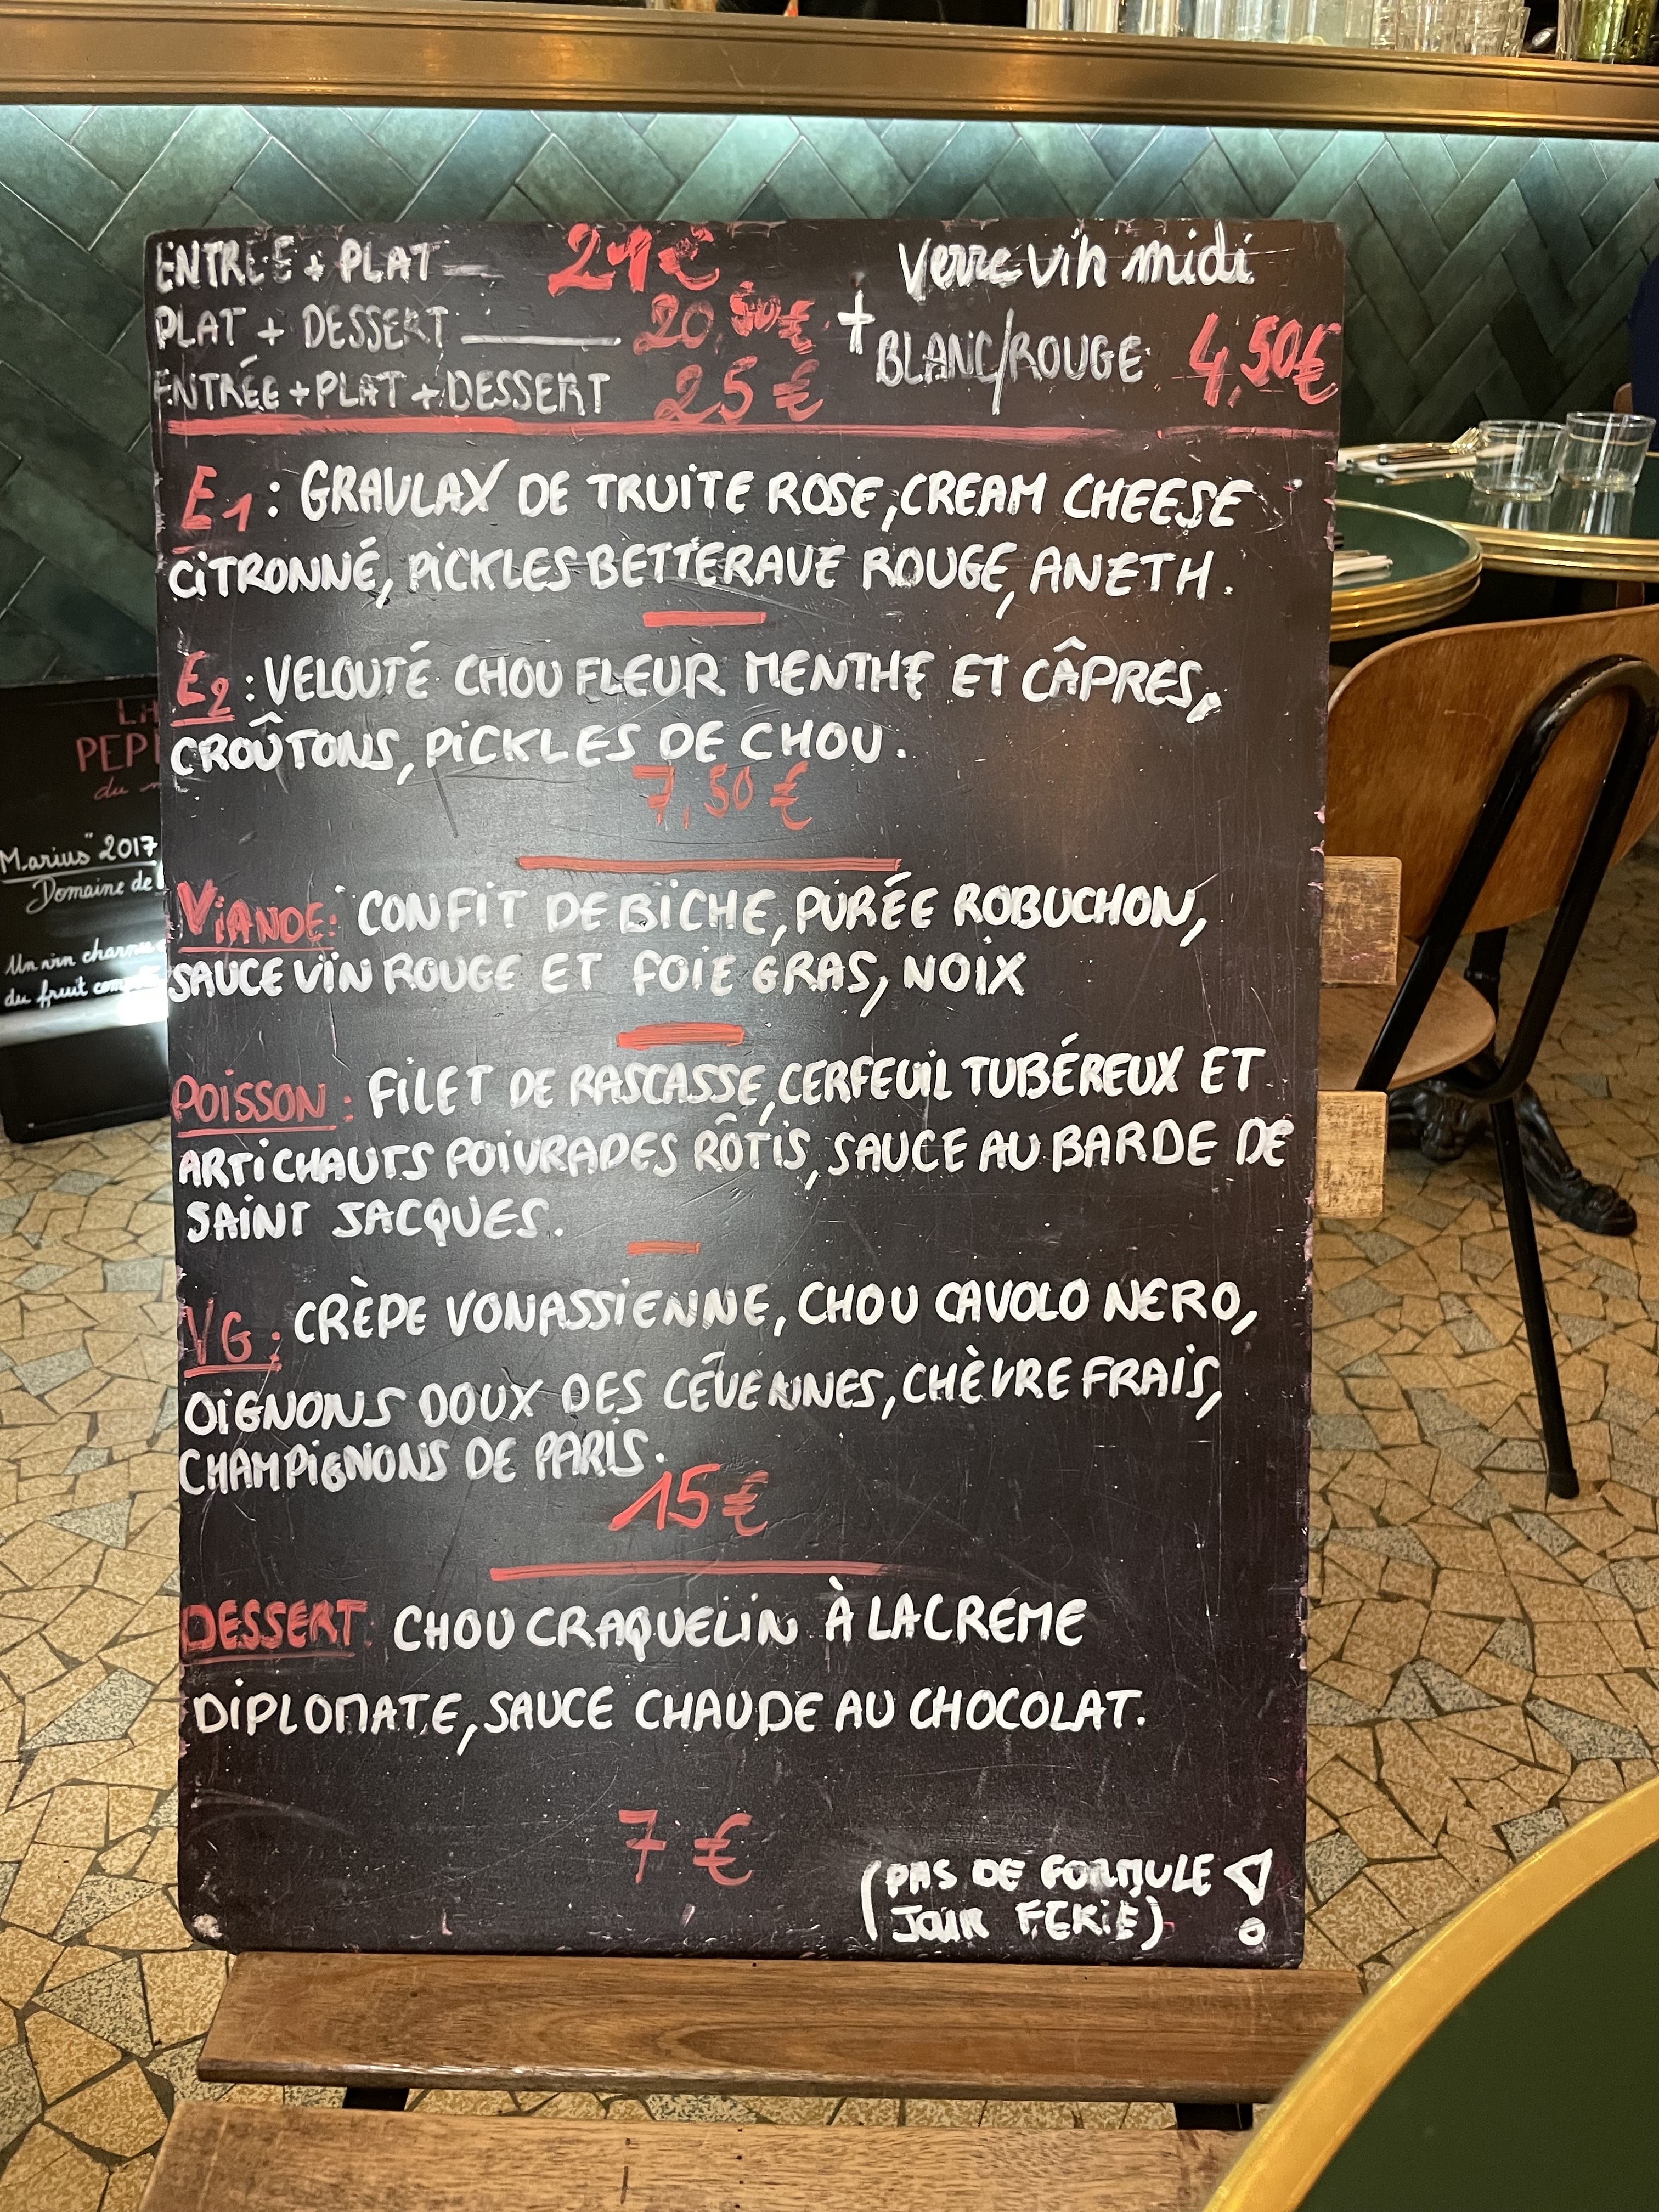 ENTRÉE + PLAT — 21€
PLAT + DESSERT — 20,50€
ENTRÉE+PLAT+DESSERT 25€
Verre vin midi
+ BLANC/ROUGE 4,50€
E1: GRAULAX DE TRUITE ROSE, CREAM CHEESE
CITRONNÉ, PICKLES BETTERAVE ROUGE, ANETH.
E2: VELOUTÉ CHOU FLEUR MENTHE ET CÂPRES,
CROÛTONS, PICKLES DE CHOU.
7,50€
VIANDE: CONFIT DE BICHE, PURÉE ROBUCHON,
SAUCE VIN ROUGE ET FOIE GRAS, NOIX
POISSON: FILET DE RASCASSE, CERFEUIL TUBÉREUX ET
ARTICHAUTS POIVRADES RÔTIS, SAUCE AU BARDE DE
SAINT JACQUES.
VG: CRÈPE VONASSIENNE, CHOU CAVOLO NERO,
OIGNONS DOUX DES CÉVENNES, CHÈVRE FRAIS,
CHAMPIGNONS DE PARIS.
15€
DESSERT: CHOU CRAQUELIN À LA CREME
DIPLOMATE, SAUCE CHAUDE AU CHOCOLAT.
7€
(PAS DE FORMULE !
JOUR FERIÉ)
PEPI
du
"Marius" 2017
Domaine de
Un vin charnu
du fruit